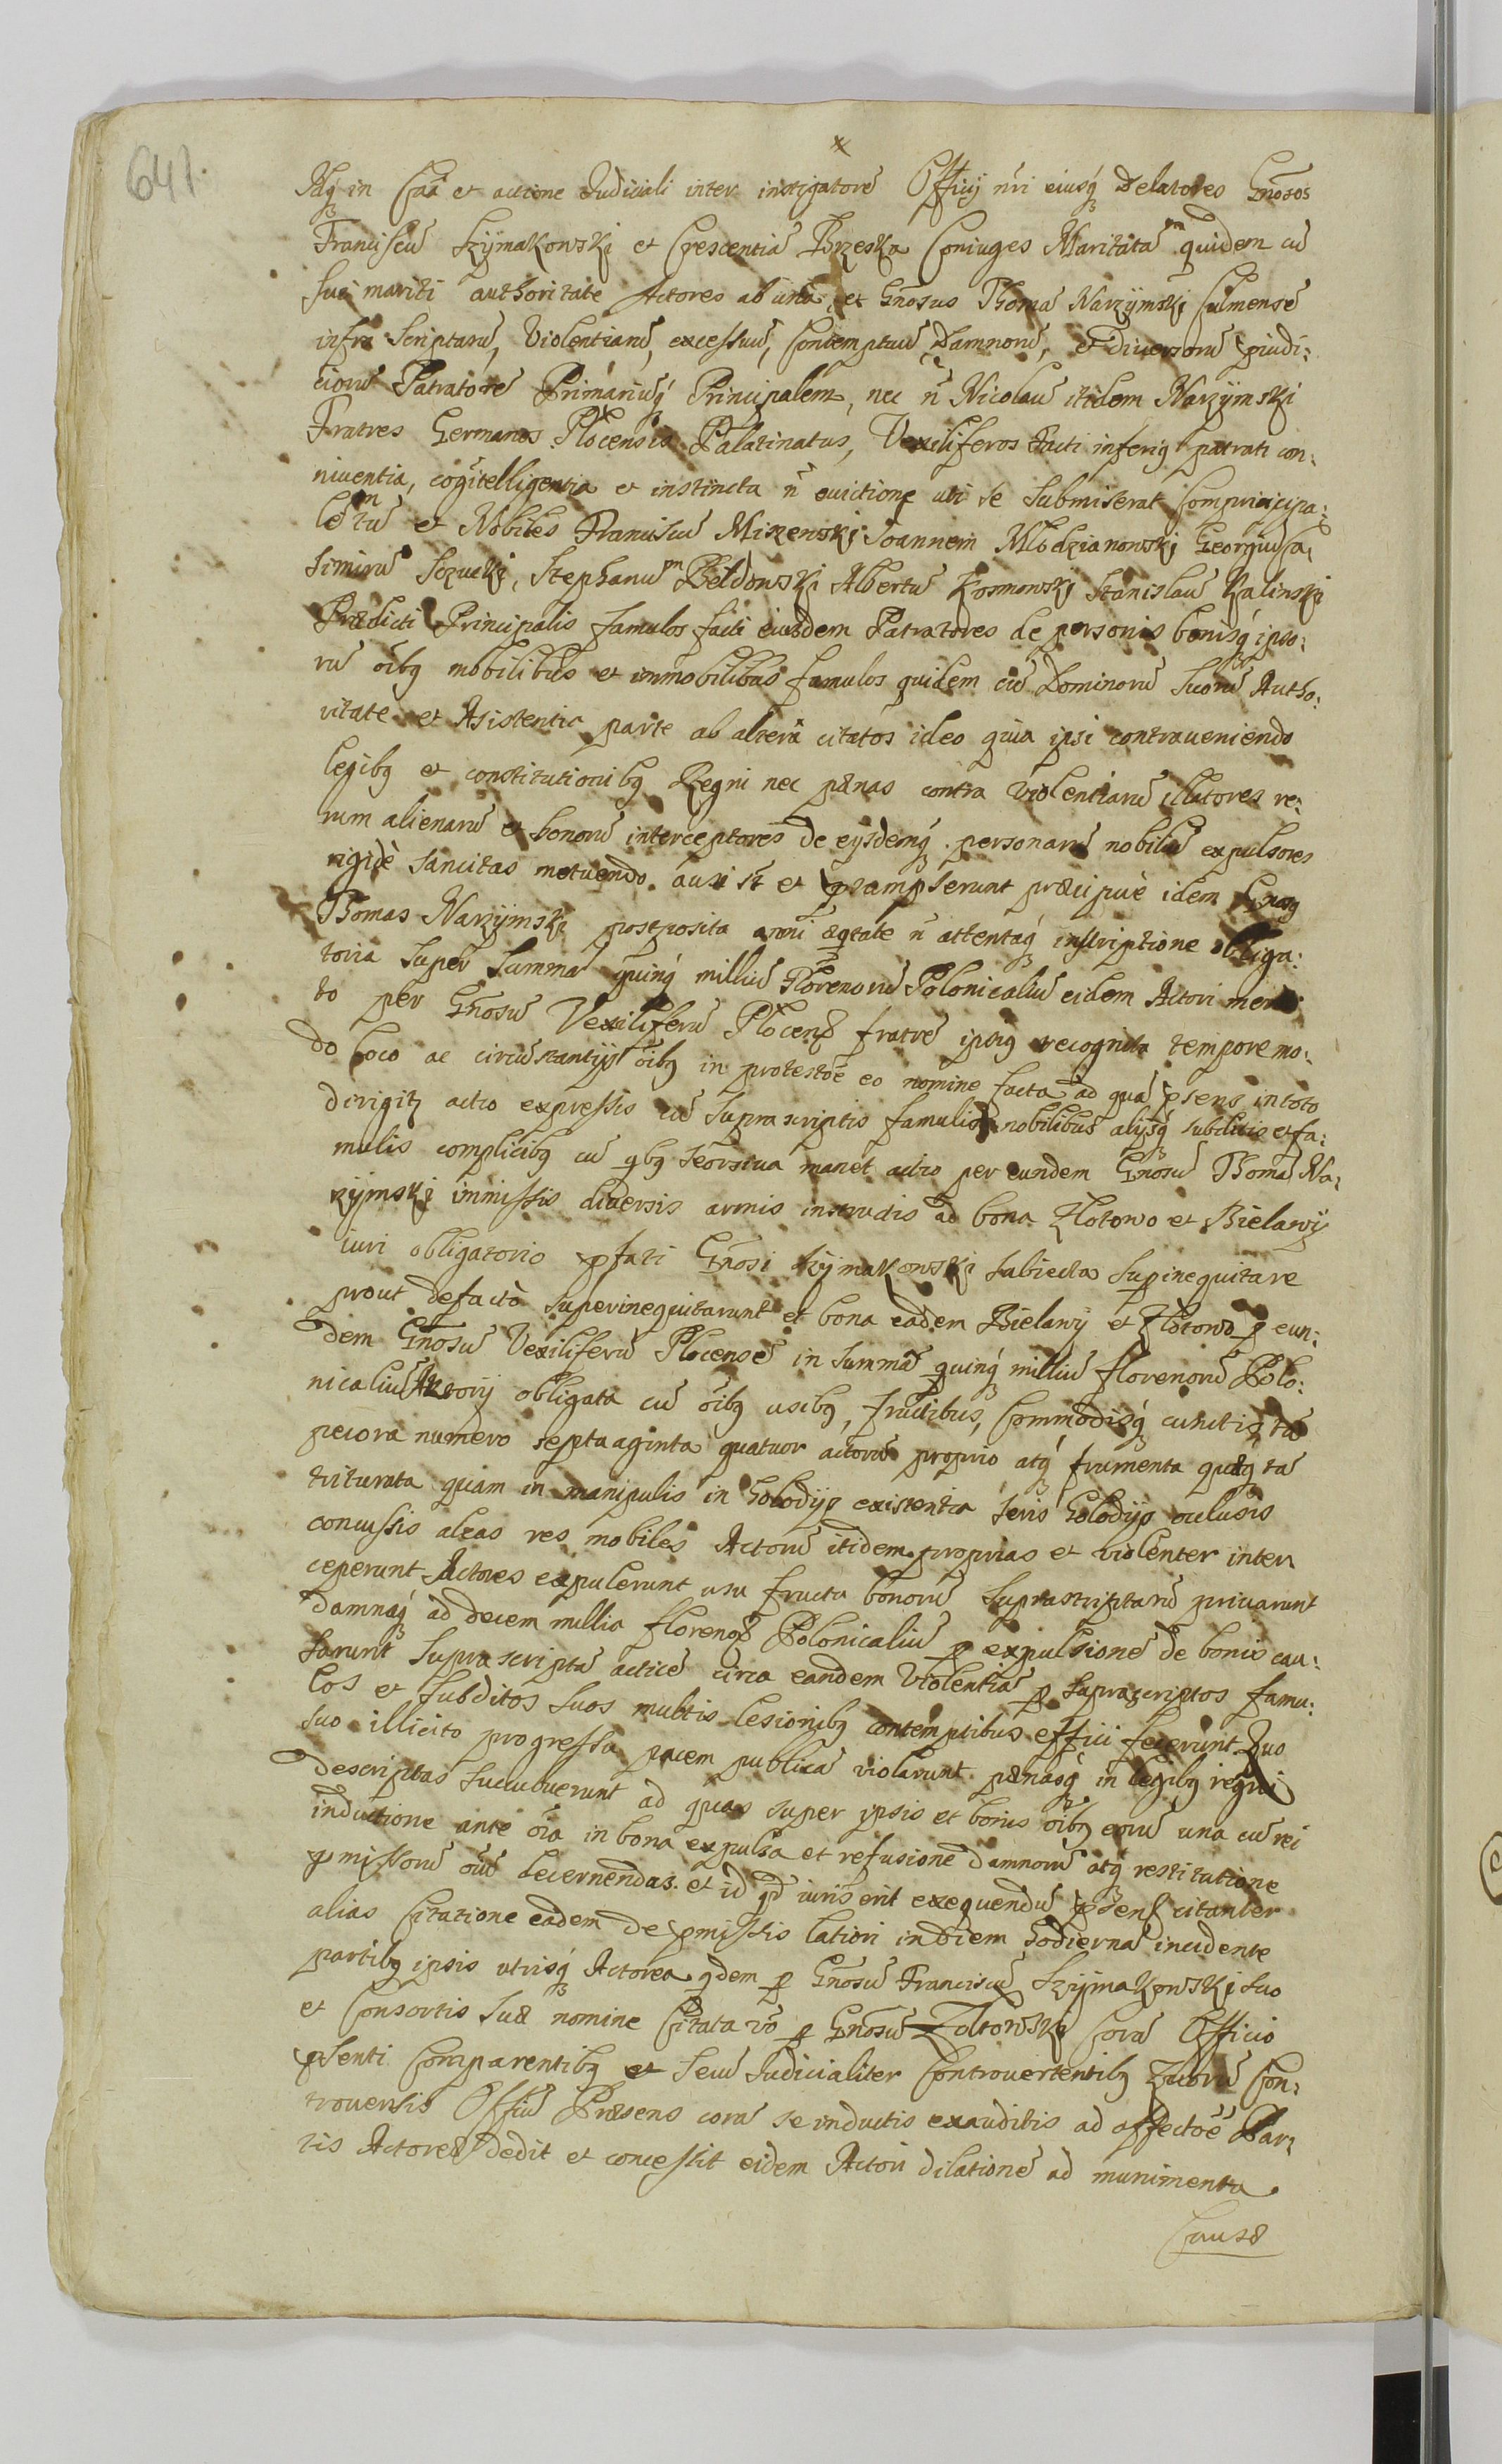 641.
x
Itaq in Caã et actione Iudiciali inter instigatorẽ Officij nr̃i eiusq Delatores Gn̄osos
Franciscũ Szÿmakowski et Crescentiã Brzeska Coniuges Maritatã quidem cũ
sui mariti authoritate Actores ab unã, et Gn̄osus Thomã Narzÿmski Culmensẽ
infra scriptarũ, Violentiarũ, excessuũ, Contemptuũ Damnorũ, et Diuersorũ piudi:
ciorũ Patratorẽ Primariũq Principalem, nec n̄ Nicolaũ itidem Narzÿmski
Fratres Germanos Plocensis Palatinatus, Vexiliferos facti inferiq patrati con:
niuentia, cogitelligentia et instincta n̄ euictione uti se submiserat Comprincipa:
lem tũ et Nobiles Franciscũ Mizewski Ioannem Mlodzianowski Georgiũ Ca:
simirũ Szucki, Stephanũ Beldowski Albertũ Kosmowski Stanislaũ Kalinski
Prædicti Principalis famulos facti eiusdem Patratores de personis bonisq ipso:
rũ oibq mobilibus et immobilibus famulos quidem cũ Dominorũ suorũ Autho:
ritate et Asistentia parte ab alterã citatos ideo quia ipsi contraueniendo
legibq et constitutionibq Regni nec pænas contra violentiarũ illatores re:
rum alienarũ et bonorũ interceptores de eysdemq personarũ nobiliũ expulsores
rigidè sancitas metuendo ausi st et præsumpserunt præcipuè idem Gnosq
Thomas Narzÿmski postposita omni æqtate n̄ attentaq inscriptione obliga:
toria super summã quinq milliũ Florenorũ Polonicaliũ eidem Actori
to per Gn̄osũ Vexiliferũ Plocens fratrẽ ipsiq recognita tempore mo:
do loco ac circũstantijs oibq in protestoẽ eo nomine facta ad quã psens in toto
dirigitz actio expressis cũ suprascriptis famulis nobilibus alysq subditis et fa:
mulis complicibq cũ qbq seorsiua manet actio per eundem Gnosũ Thomã Na:
rzÿmski immissis diuersis armis instructis ad bona Zlotowo et Bielawÿ
iuri obligatorio pfati Gn̄osi Szÿmakowski subiecta supinequitare
prout defactò superinequitarunt et bona eadem Bielawÿ et Zlotowo p eun:
dem Gn̄osũ Vexiliferũ Plocensẽ in summã quinq milliũ florenorũ Polo:
nicaliũ Actorij obligata cũ oibq usibq, fructibus, Commodisq cunctis tũ
pecora numero septaaginta quatuor actorũ proprio atq frumenta quæq tã
triturata quam in manipulis in Golodijs existentia seris Golodijs oclusis
concussis aleas res mobiles Actorũ itidem proprias et violenter inter
ceperunt Actores expulerunt usu fructu bonorũ suprascriptarũ priuarunt
damnaq ad decem millia florenos Polonicaliũ p expulsionẽ de bonis cau:
sarunt suprascripta acticẽ circa eandem Violentiã p suprascriptos famu:
los et subditos suos multis lesionibq contemptibus effici fecerunt Quo
suo illicito progressu pacem publicã violarunt pænasq in legibq regni
descriptas succubuerunt ad quas super ipsis et bonis oibq eorũ una cũ rei
inductione ante oia in bona expulsa et refusione damnorũ atq restitutione
pmissorũ oiũ decernendas et id qd iuris erit exequendũ psens citanter
alias Citatione eadem de pmissis latiori in diem hodiernã incidente
partibq ipsis utrisq Actorea qdem p Gn̄osũ Franciscũ Szÿmakowski suo
et Consortis suæ nomine Citata vo p Gn̄osũ Zoltowski corã Officio
psenti Comparentibq et secũ Iudicialiter Controuertentibq Quorũ Con:
trouersis Offiũ Præsens corã se inductis exauditis ad affectoẽ Par:
tis Actoreæ dedit et concessit eidem Actori dilationẽ ad munimenta
Causæ